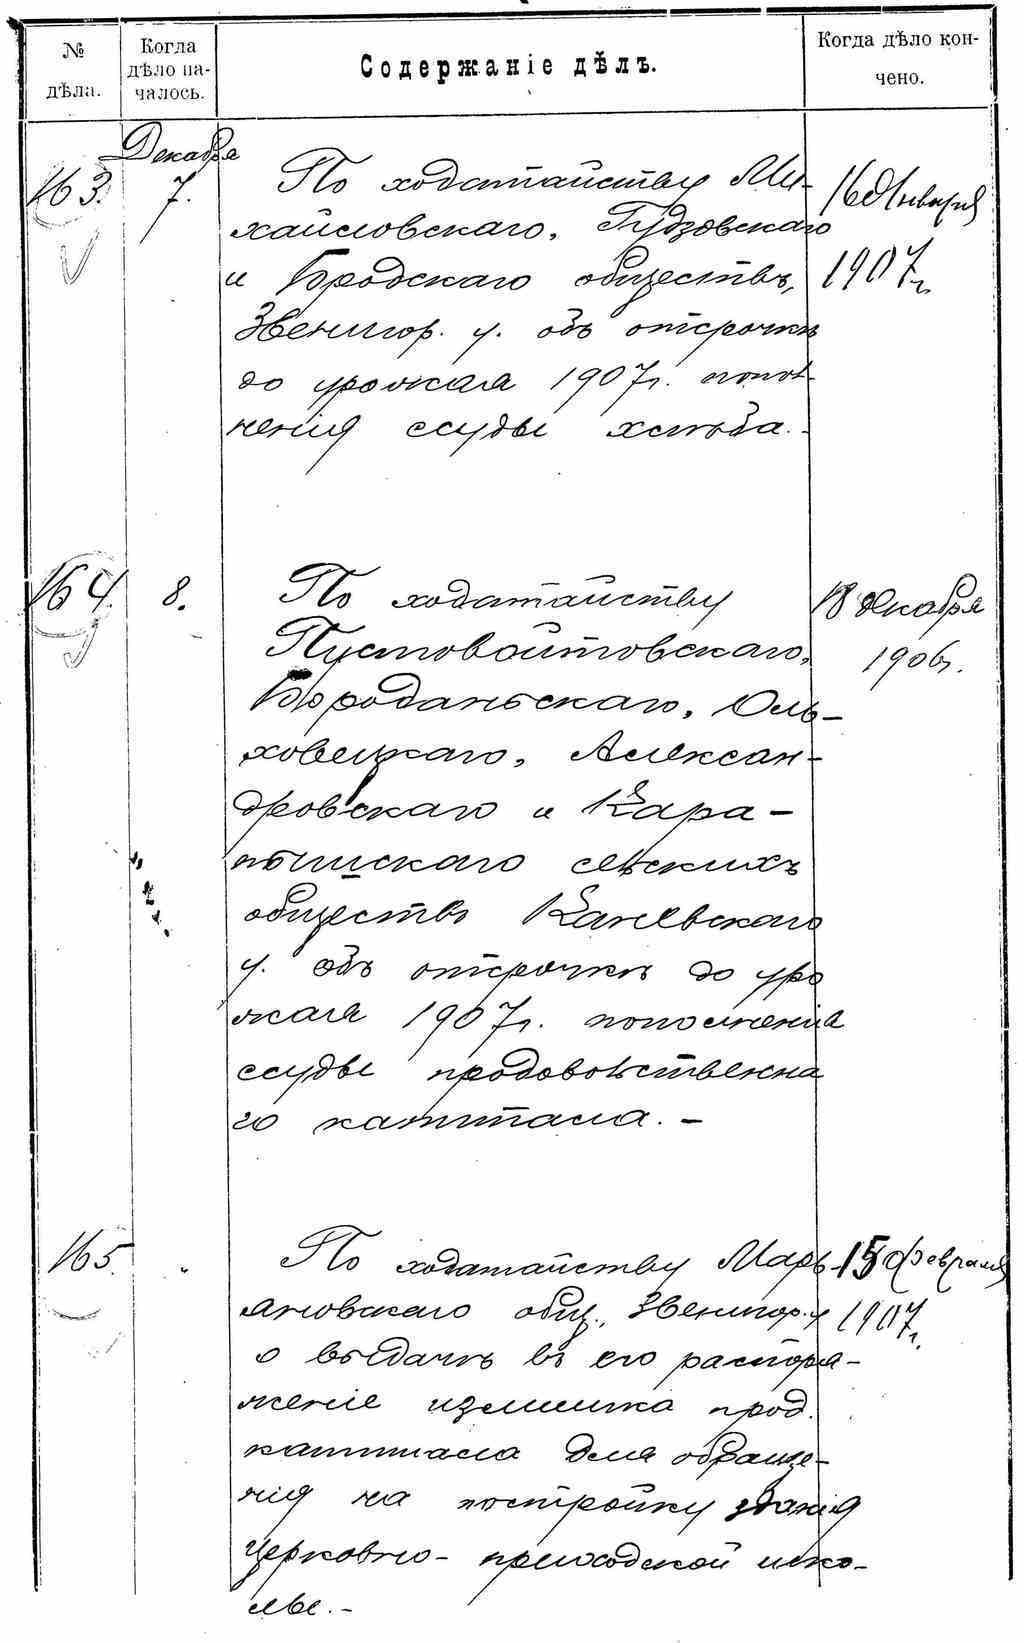 № дѣла.
Когда дѣло началось.
Содержаніе дѣлъ.
Когда дѣло кончено.
Декабря
163. 7. По ходатайству Ми- 16 Января
хайловскаго, Гудзовскаго
и Бродскаго обществъ, 1907 г.
Звенигор. у. объ отсрочкѣ
до урожая 1907 г. попол-
ненія ссуды хлѣба. -
164. 8. По ходатайству 18 декабря
Пустовойтовскаго, 1906 г.
Бороданьскаго, Оль-
ховецкаго, Алексан-
дровскаго и Кара-
пышскаго сельскихъ
обществъ Каневскаго
у. объ отсрочкѣ до уро
жая 1907 г. пополненія
ссуды продовольственна
го капитала. -
165. " По ходатайству Марь- 15 февраля
яновскаго общ., Звенигор. у 1907 г.
о выдачѣ въ его распоря-
женіе излишка прод.
капитала для обраще-
нія на постройку зданія
церковно- приходской шко-
лы. -